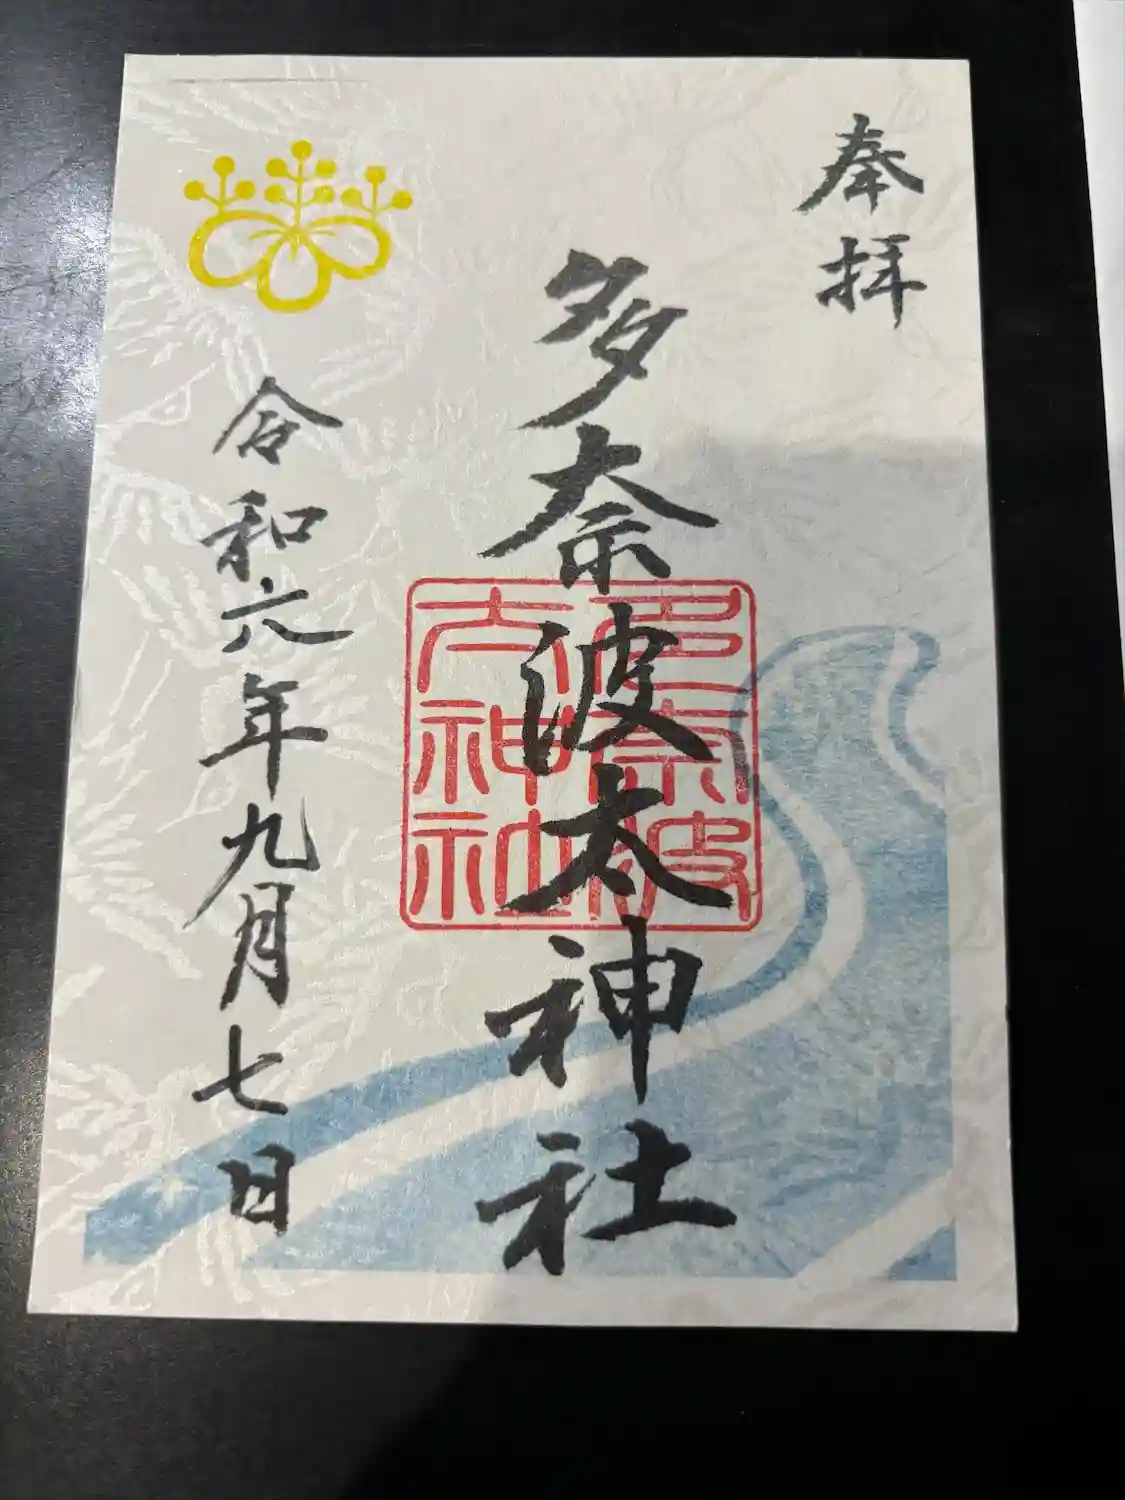 奉拝
多奈波太神社
多奈波
太神社
令和六年九月七日